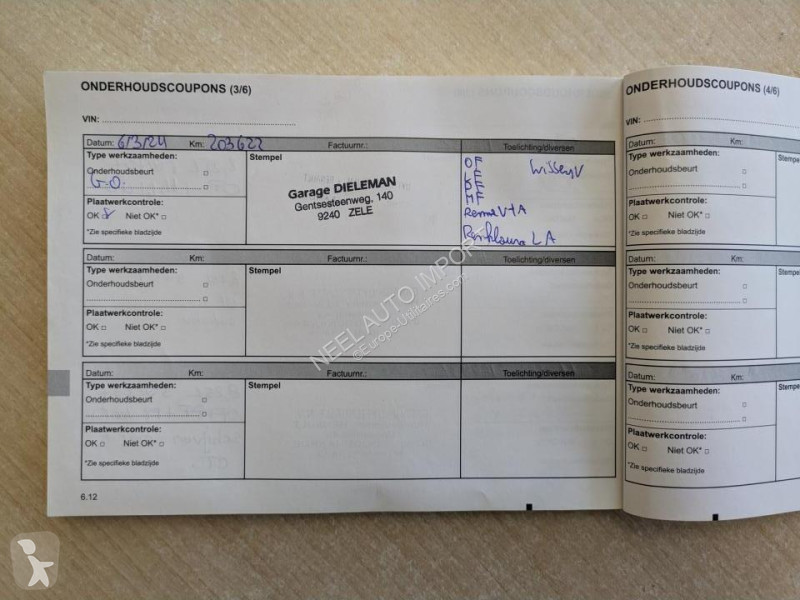 ONDERHOUDSCOUPONS (3/6)
VIN:
Datum: 6/3/24 Km: 203622 Factuurnr.: Toelichting/diversen
Type werkzaamheden:
Stempel
Onderhoudsbeurt
G.O.
Plaatwerkcontrole:
OK Niet OK*
*Zie specifieke bladzijde
Garage DIELEMAN
Gentsesteenweg, 140
9240 ZELE
OF
LF
BF
HF
Rem V+A
LA
Datum: Km: Factuurnr.: Toelichting/diversen
Type werkzaamheden:
Stempel
Onderhoudsbeurt
Plaatwerkcontrole:
OK Niet OK*
*Zie specifieke bladzijde
Datum: Km: Factuurnr.: Toelichting/diversen
Type werkzaamheden:
Stempel
Onderhoudsbeurt
Plaatwerkcontrole:
OK Niet OK*
*Zie specifieke bladzijde
6.12
ONDERHOUDSCOUPONS (4/6)
VIN:
Datum: Km:
Type werkzaamheden:
Stempel
Onderhoudsbeurt
Plaatwerkcontrole:
OK Niet OK*
*Zie specifieke bladzijde
Datum: Km:
Type werkzaamheden:
Stempe
Onderhoudsbeurt
Plaatwerkcontrole:
OK Niet OK*
*Zie specifieke bladzijde
Datum: Km:
Type werkzaamheden:
Stemp
Onderhoudsbeurt
Plaatwerkcontrole:
OK Niet OK*
*Zie specifieke bladzijde
NEEL AUTO IMPORT
©Europe-Utilitaires.com